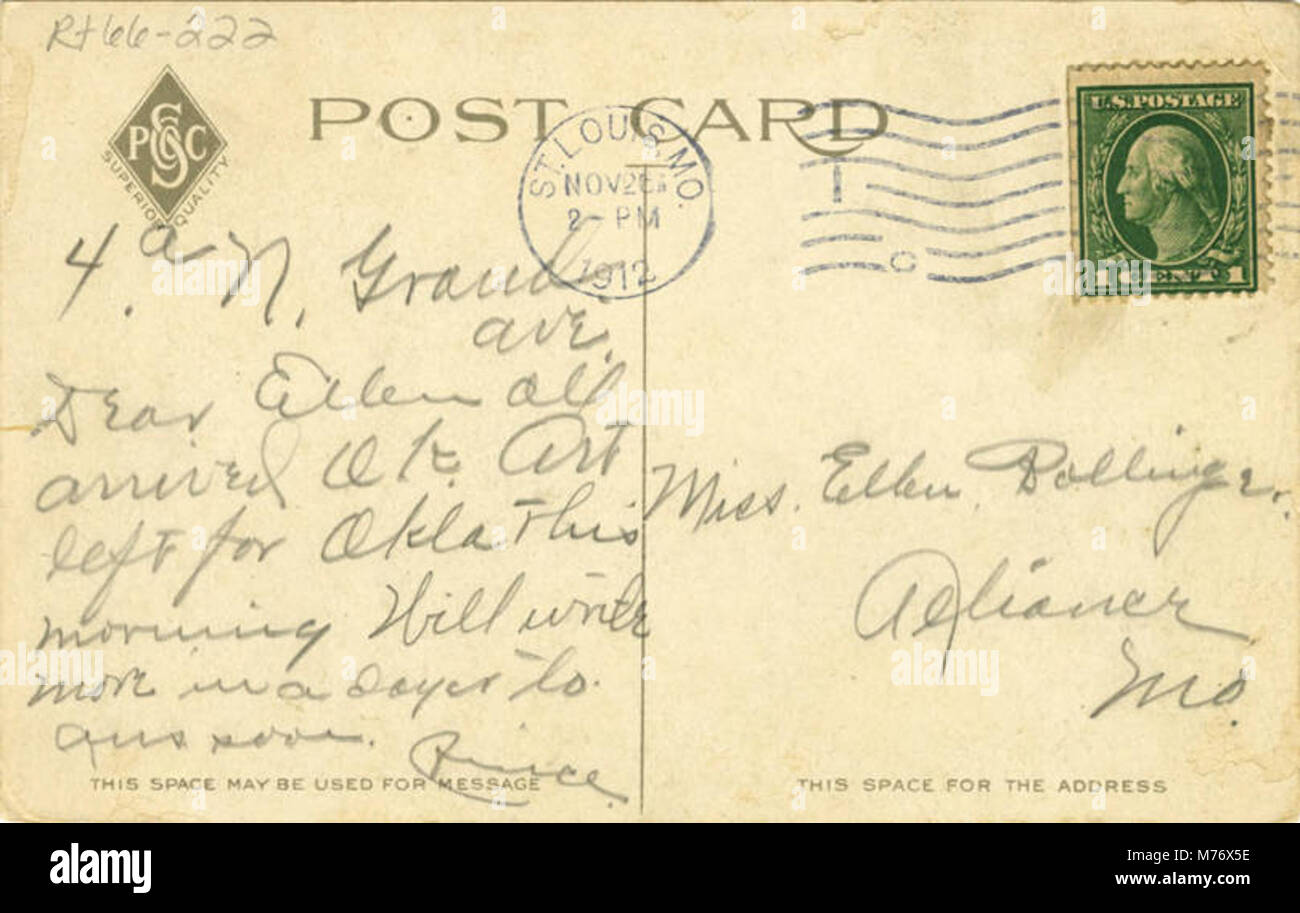 Rt66-222
POST CARD
PCSSC
SUPERIOR QUALITY
ST. LOUIS, MO.
NOV 26
2 - PM
1912
U.S. POSTAGE
1 CENT 1
4 a N. Grand
ave.
Dear Ellen all
arrived O.K. Art
left for Okla this
morning Will write
more in a day or to.
ans soon.
Miss. Ellen Bollinger.
Mo.
THIS SPACE MAY BE USED FOR MESSAGE
THIS SPACE FOR THE ADDRESS
alamy
Image ID: M76X5E
www.alamy.com